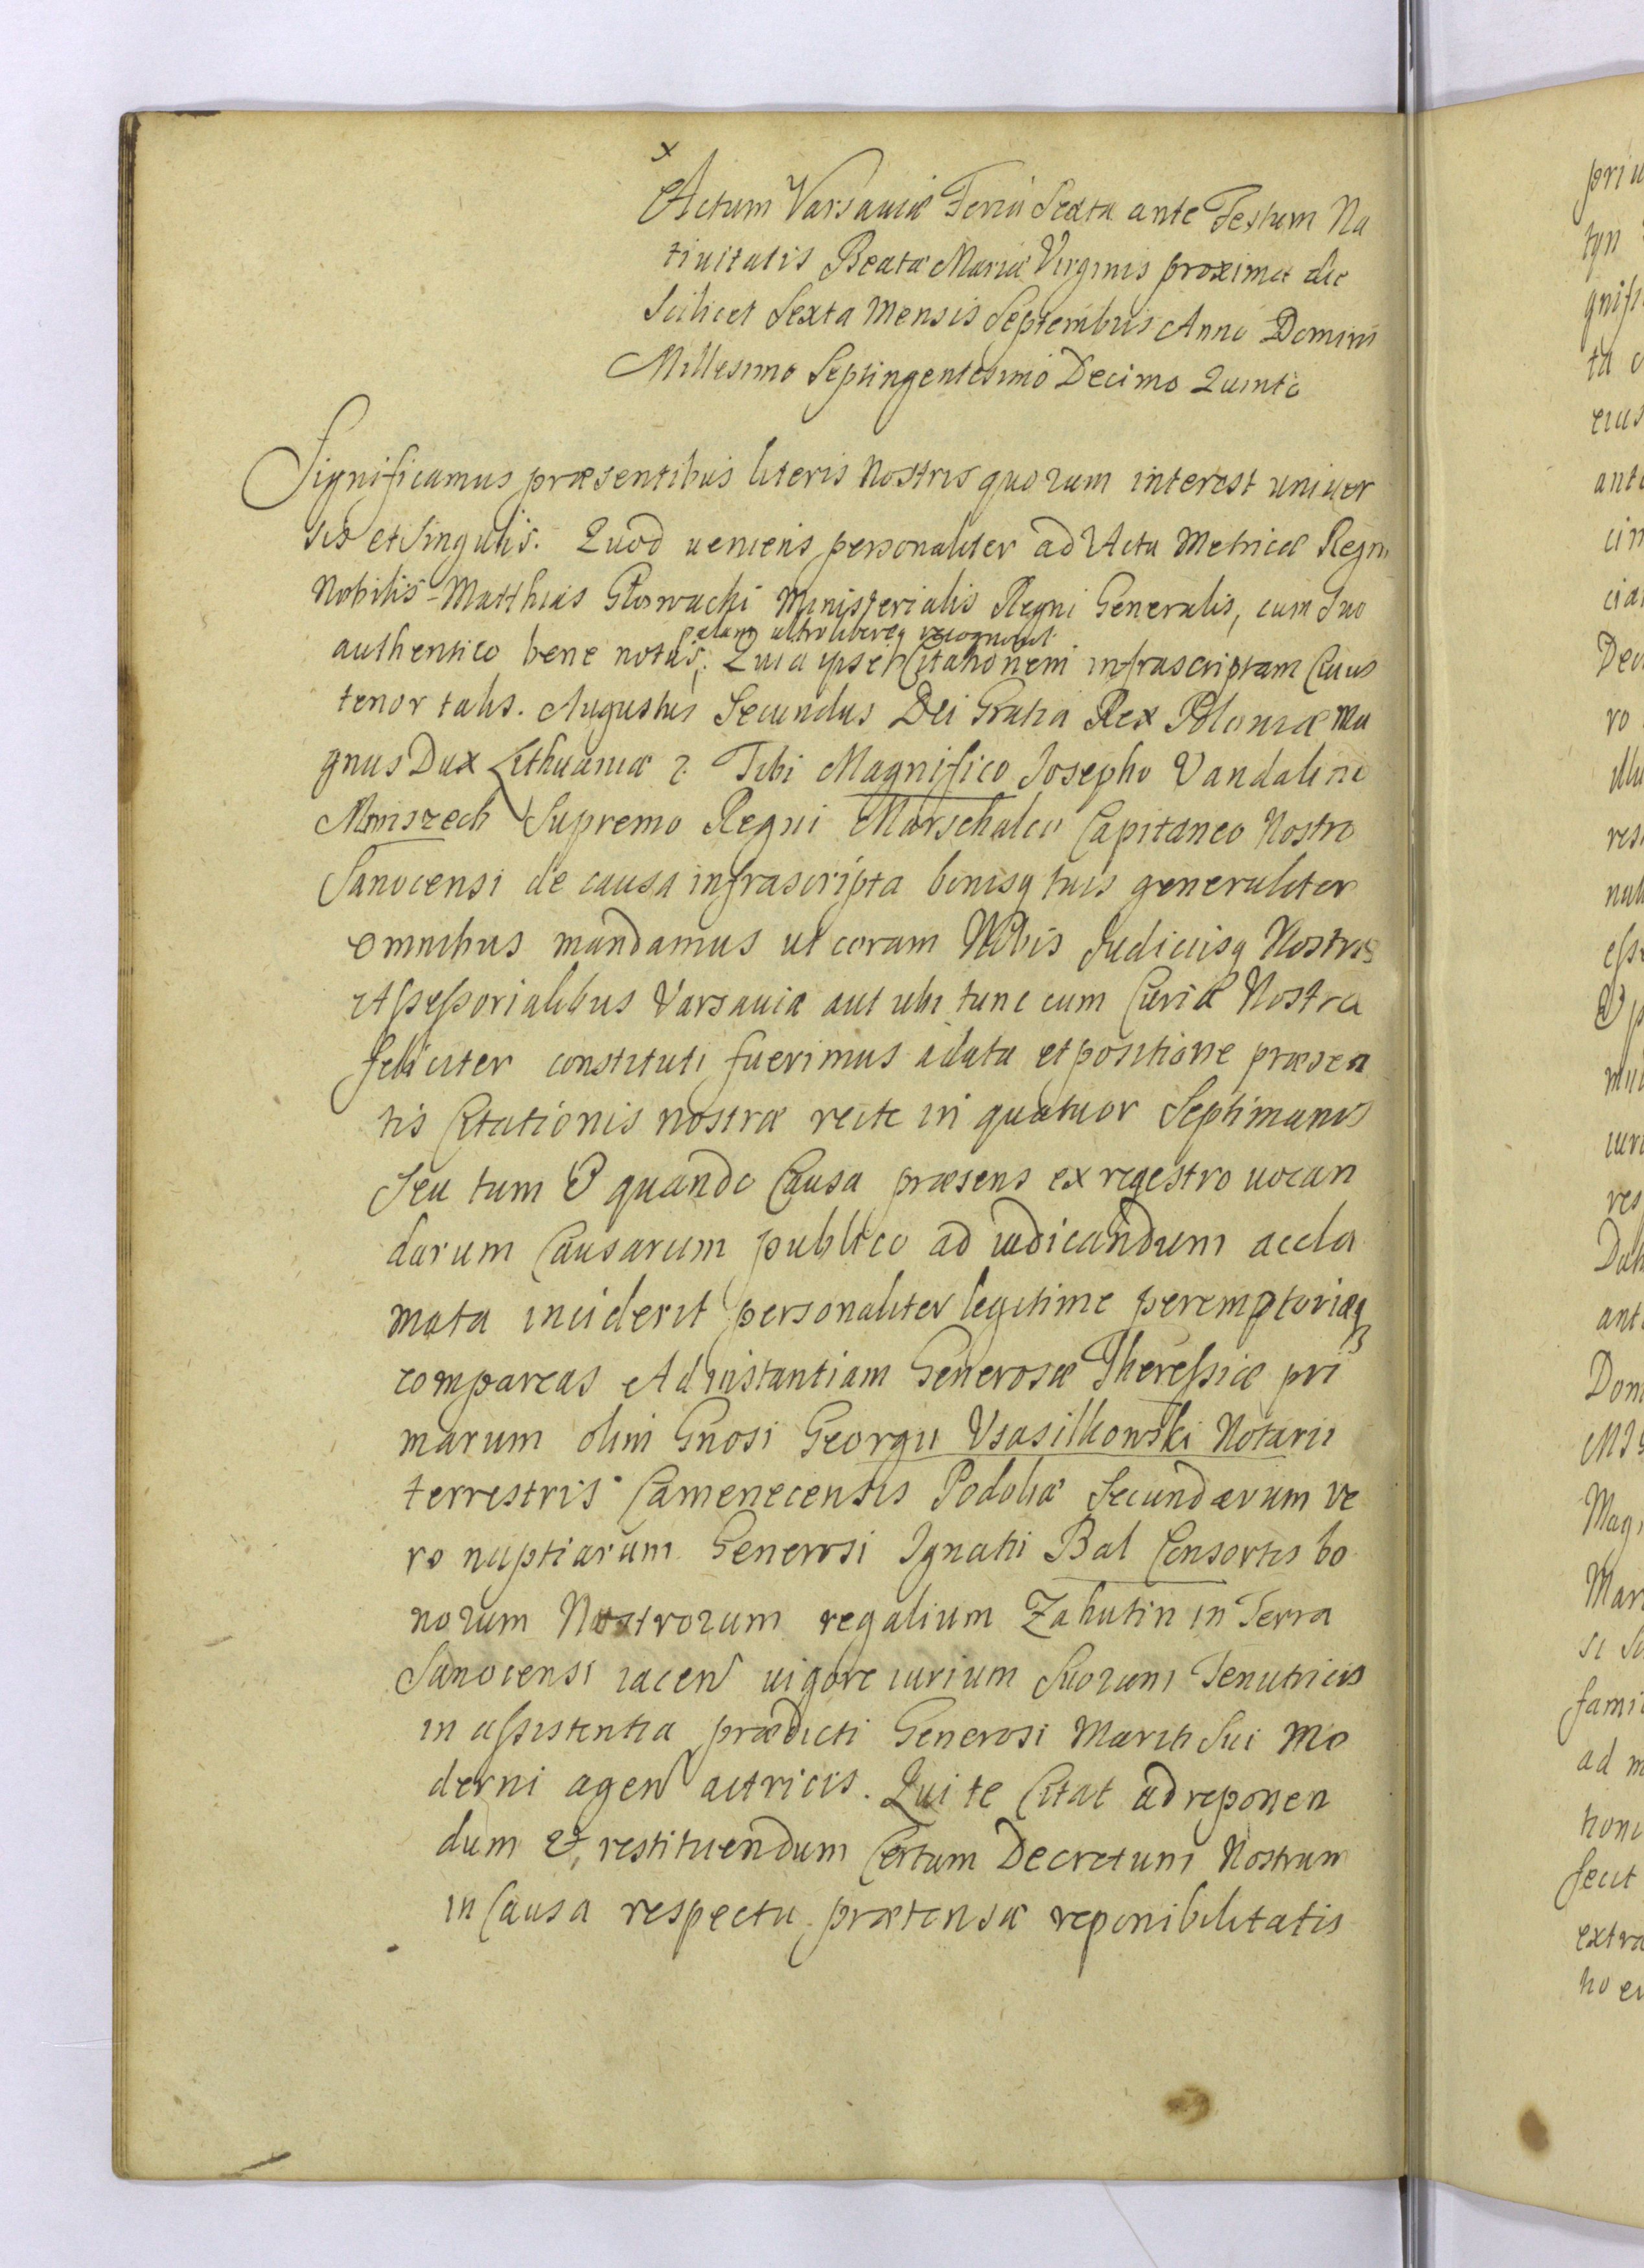 x
Actum Varsaviæ Feria Sexta ante Festum Na
tiuitatis Beatæ Mariæ Virginis proxima die
Scilicet Sexta Mensis Septembris Anno Domini
Millesimo Septingentesimo Decimo Quinto
Significamus præsentibus literis Nostris quorum interest uniuer
sis et Singulis. Quod ueniens personaliter ad Acta Metricæ Regni
Nobilis Matthias Głowacki Ministerialis Regni Generalis, cum Suo
palam ultro libereq recognouit
authentico bene notus; Quia ipse Citationem infrascriptam Cuius
tenor talis. Augustus Secundus Dei Gratia Rex Poloniæ Ma
gnus Dux Lithuaniæ &. Tibi Magnifico Josepho Vandalino
Mniszech Supremo Regni Marschalco Capitaneo Nostro
Sanocensi de causa infrascripta bonisq tuis generaliter
omnibus mandamus ut coram Nobis Judiciisq Nostris
Assessorialibus Varsauiæ aut ubi tunc cum Curia Nostra
feliciter constituti fuerimus a data et positione præsen
tis Citationis nostræ recte in quatuor Septimanis
Seu tum & quando Causa præsens ex regestro uocan
darum Causarum publico ad iudicandum accla
mata inciderit personaliter legitime peremptorieq
compareas Ad instantiam Generosæ Theressiæ pri
marum olim Gnosi Georgii Vsasilkowski Notarii
terrestris Camenecensis Podoliæ Secundarum ve
ro nuptiarum Generosi Ignatii Bal Consortis bo
norum Nostrorum regalium Zahutin in Terra
Sanocensi iacen uigore iurium Suorum Tenutricis
in assistentia prædicti Generosi Mariti Sui Mo
derni agen actricis. Qui te Citat ad reponen
dum & restituendum Certum Decretum Nostrum
in Causa respectu prætensæ reponibilitatis